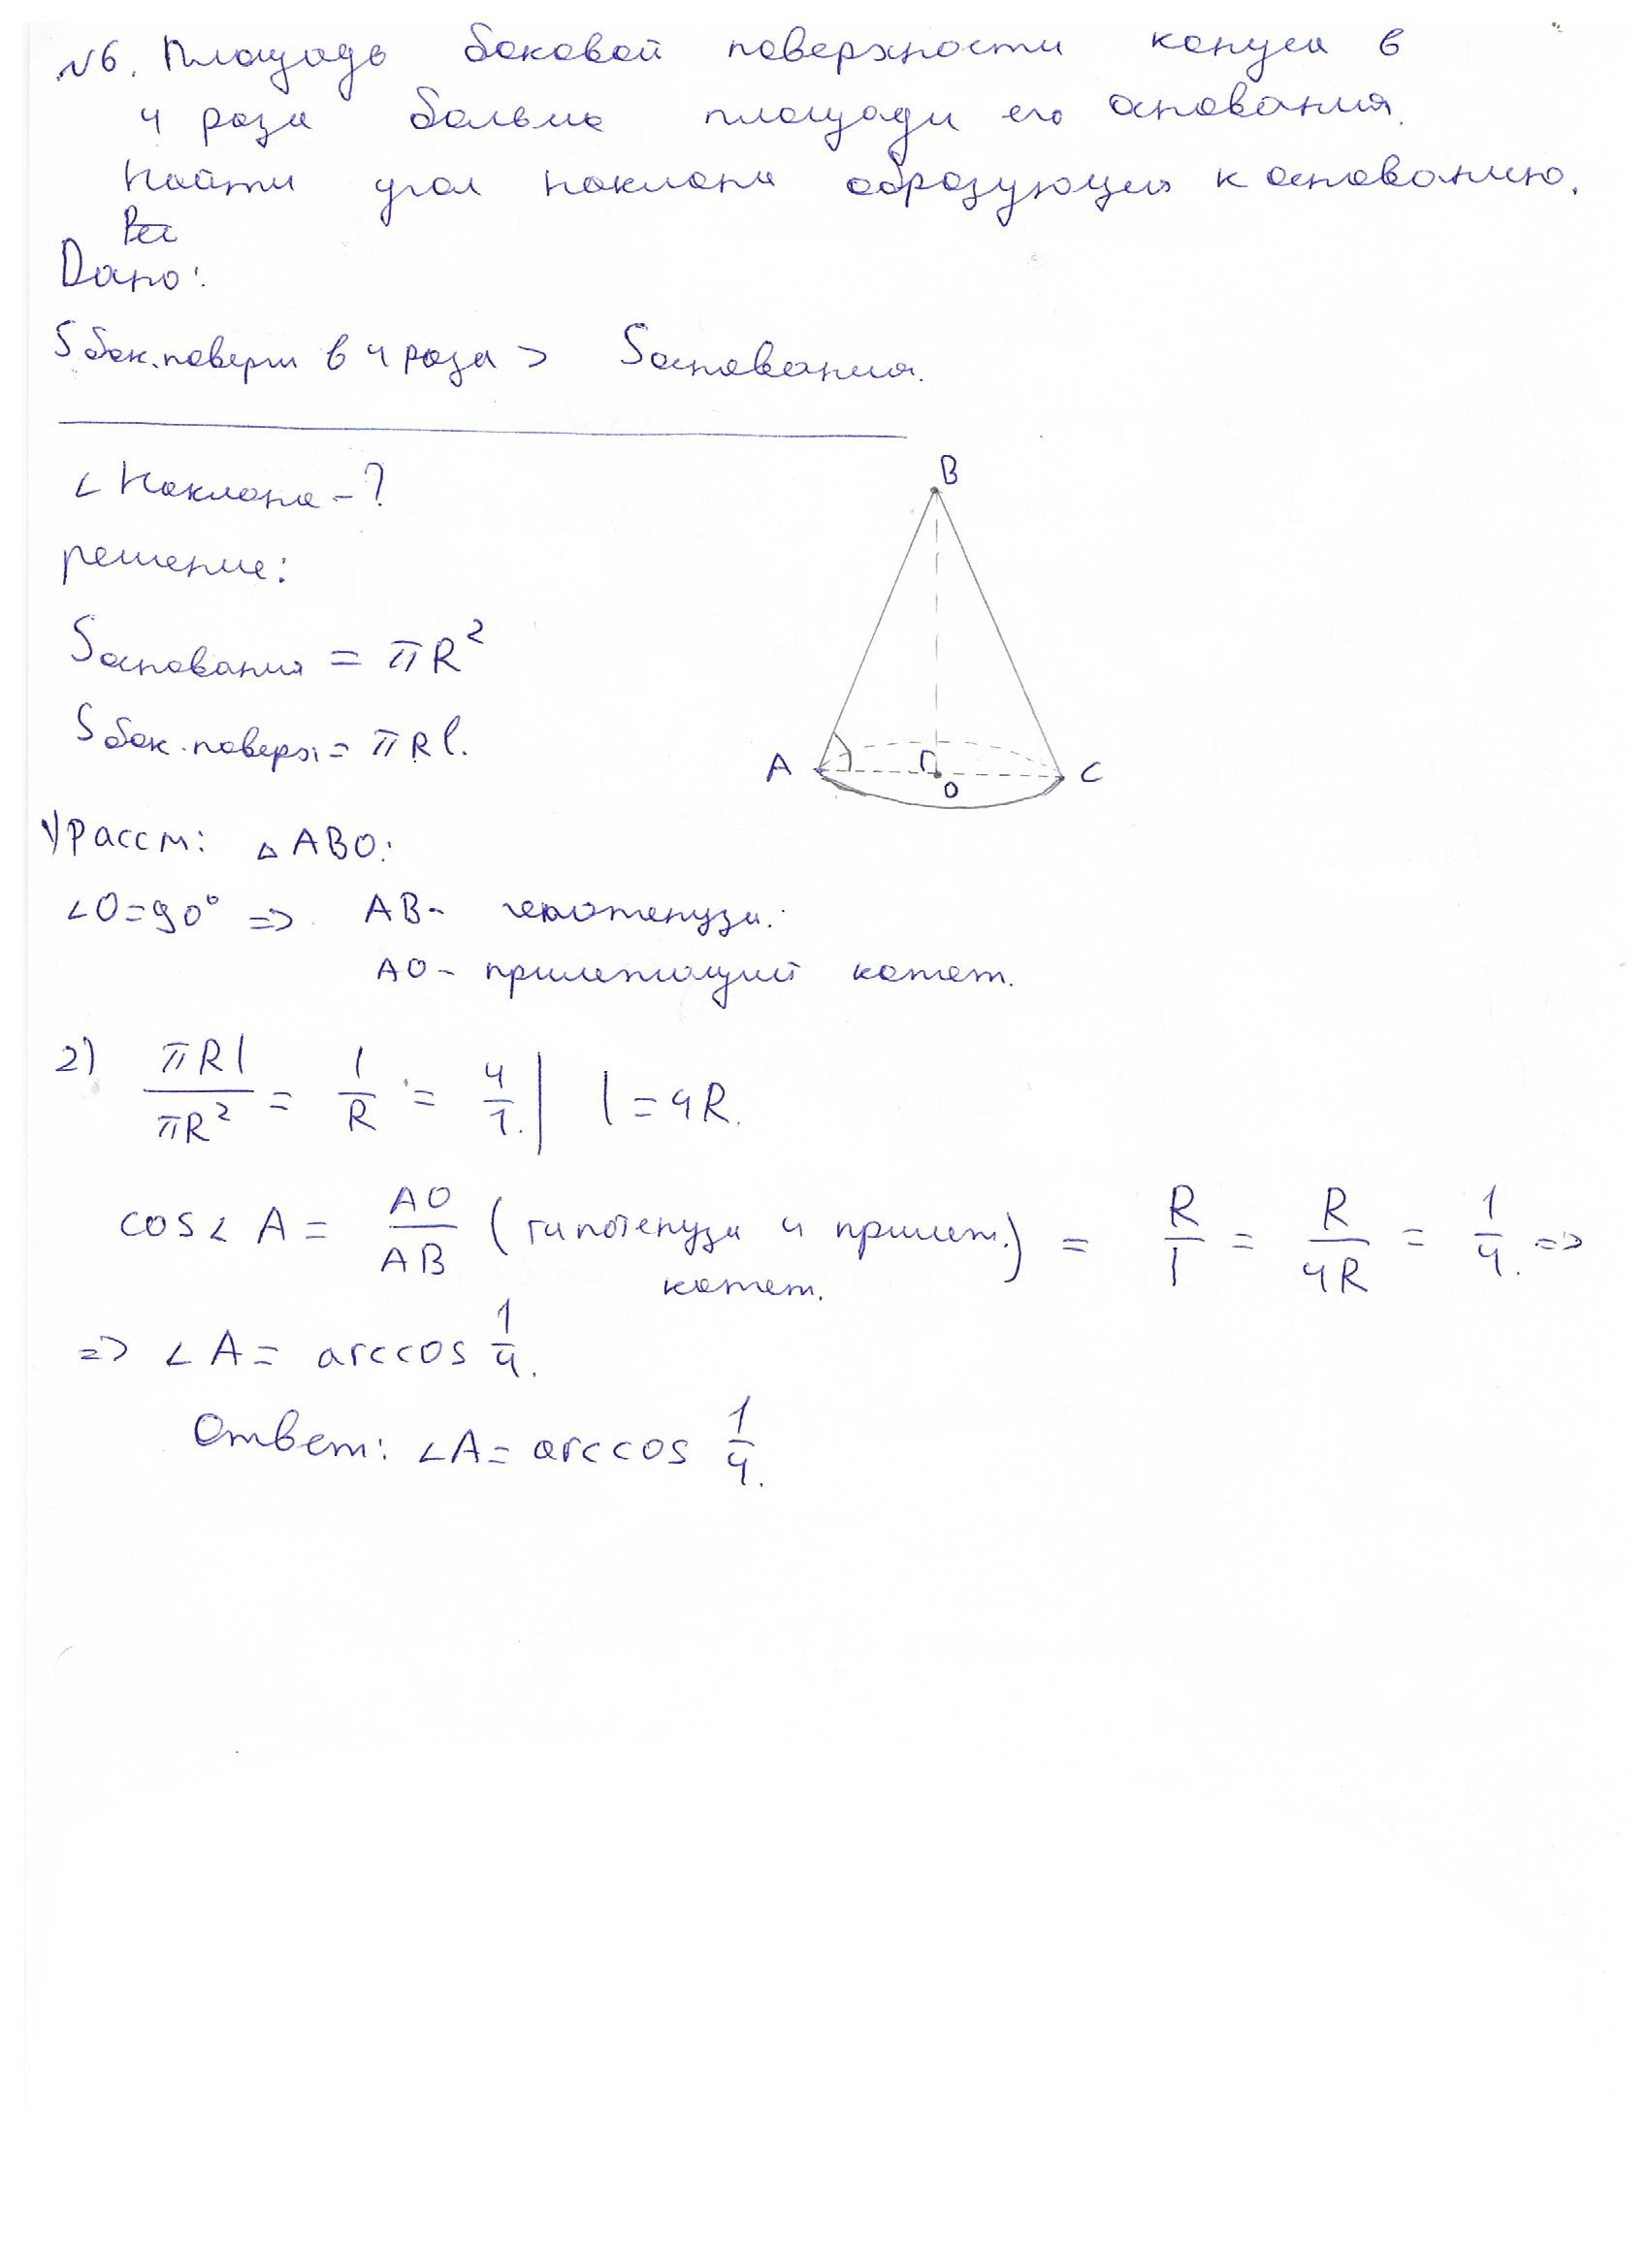 №6. Площадь боковой поверхности конуса в
4 раза больше площади его основания.
Найти угол наклона образующей к основанию.
Дано:
S бок.поверхн в 4 раза > S основания.
∠ Наклона - ?
решение:
S основания = πR²
S бок.поверх = πRl.
B
A
O
C
1) Рассм: △ABO:
∠O=90° => AB - гипотенуза.
AO - прилежащий катет.
2) πRl/πR² = l/R = 4/1. | l = 4R.
cos∠A = AO/AB (гипотенуза и прилеж. катет.) = R/l = R/4R = 1/4. =>
=> ∠A = arccos 1/4.
Ответ: ∠A = arccos 1/4.